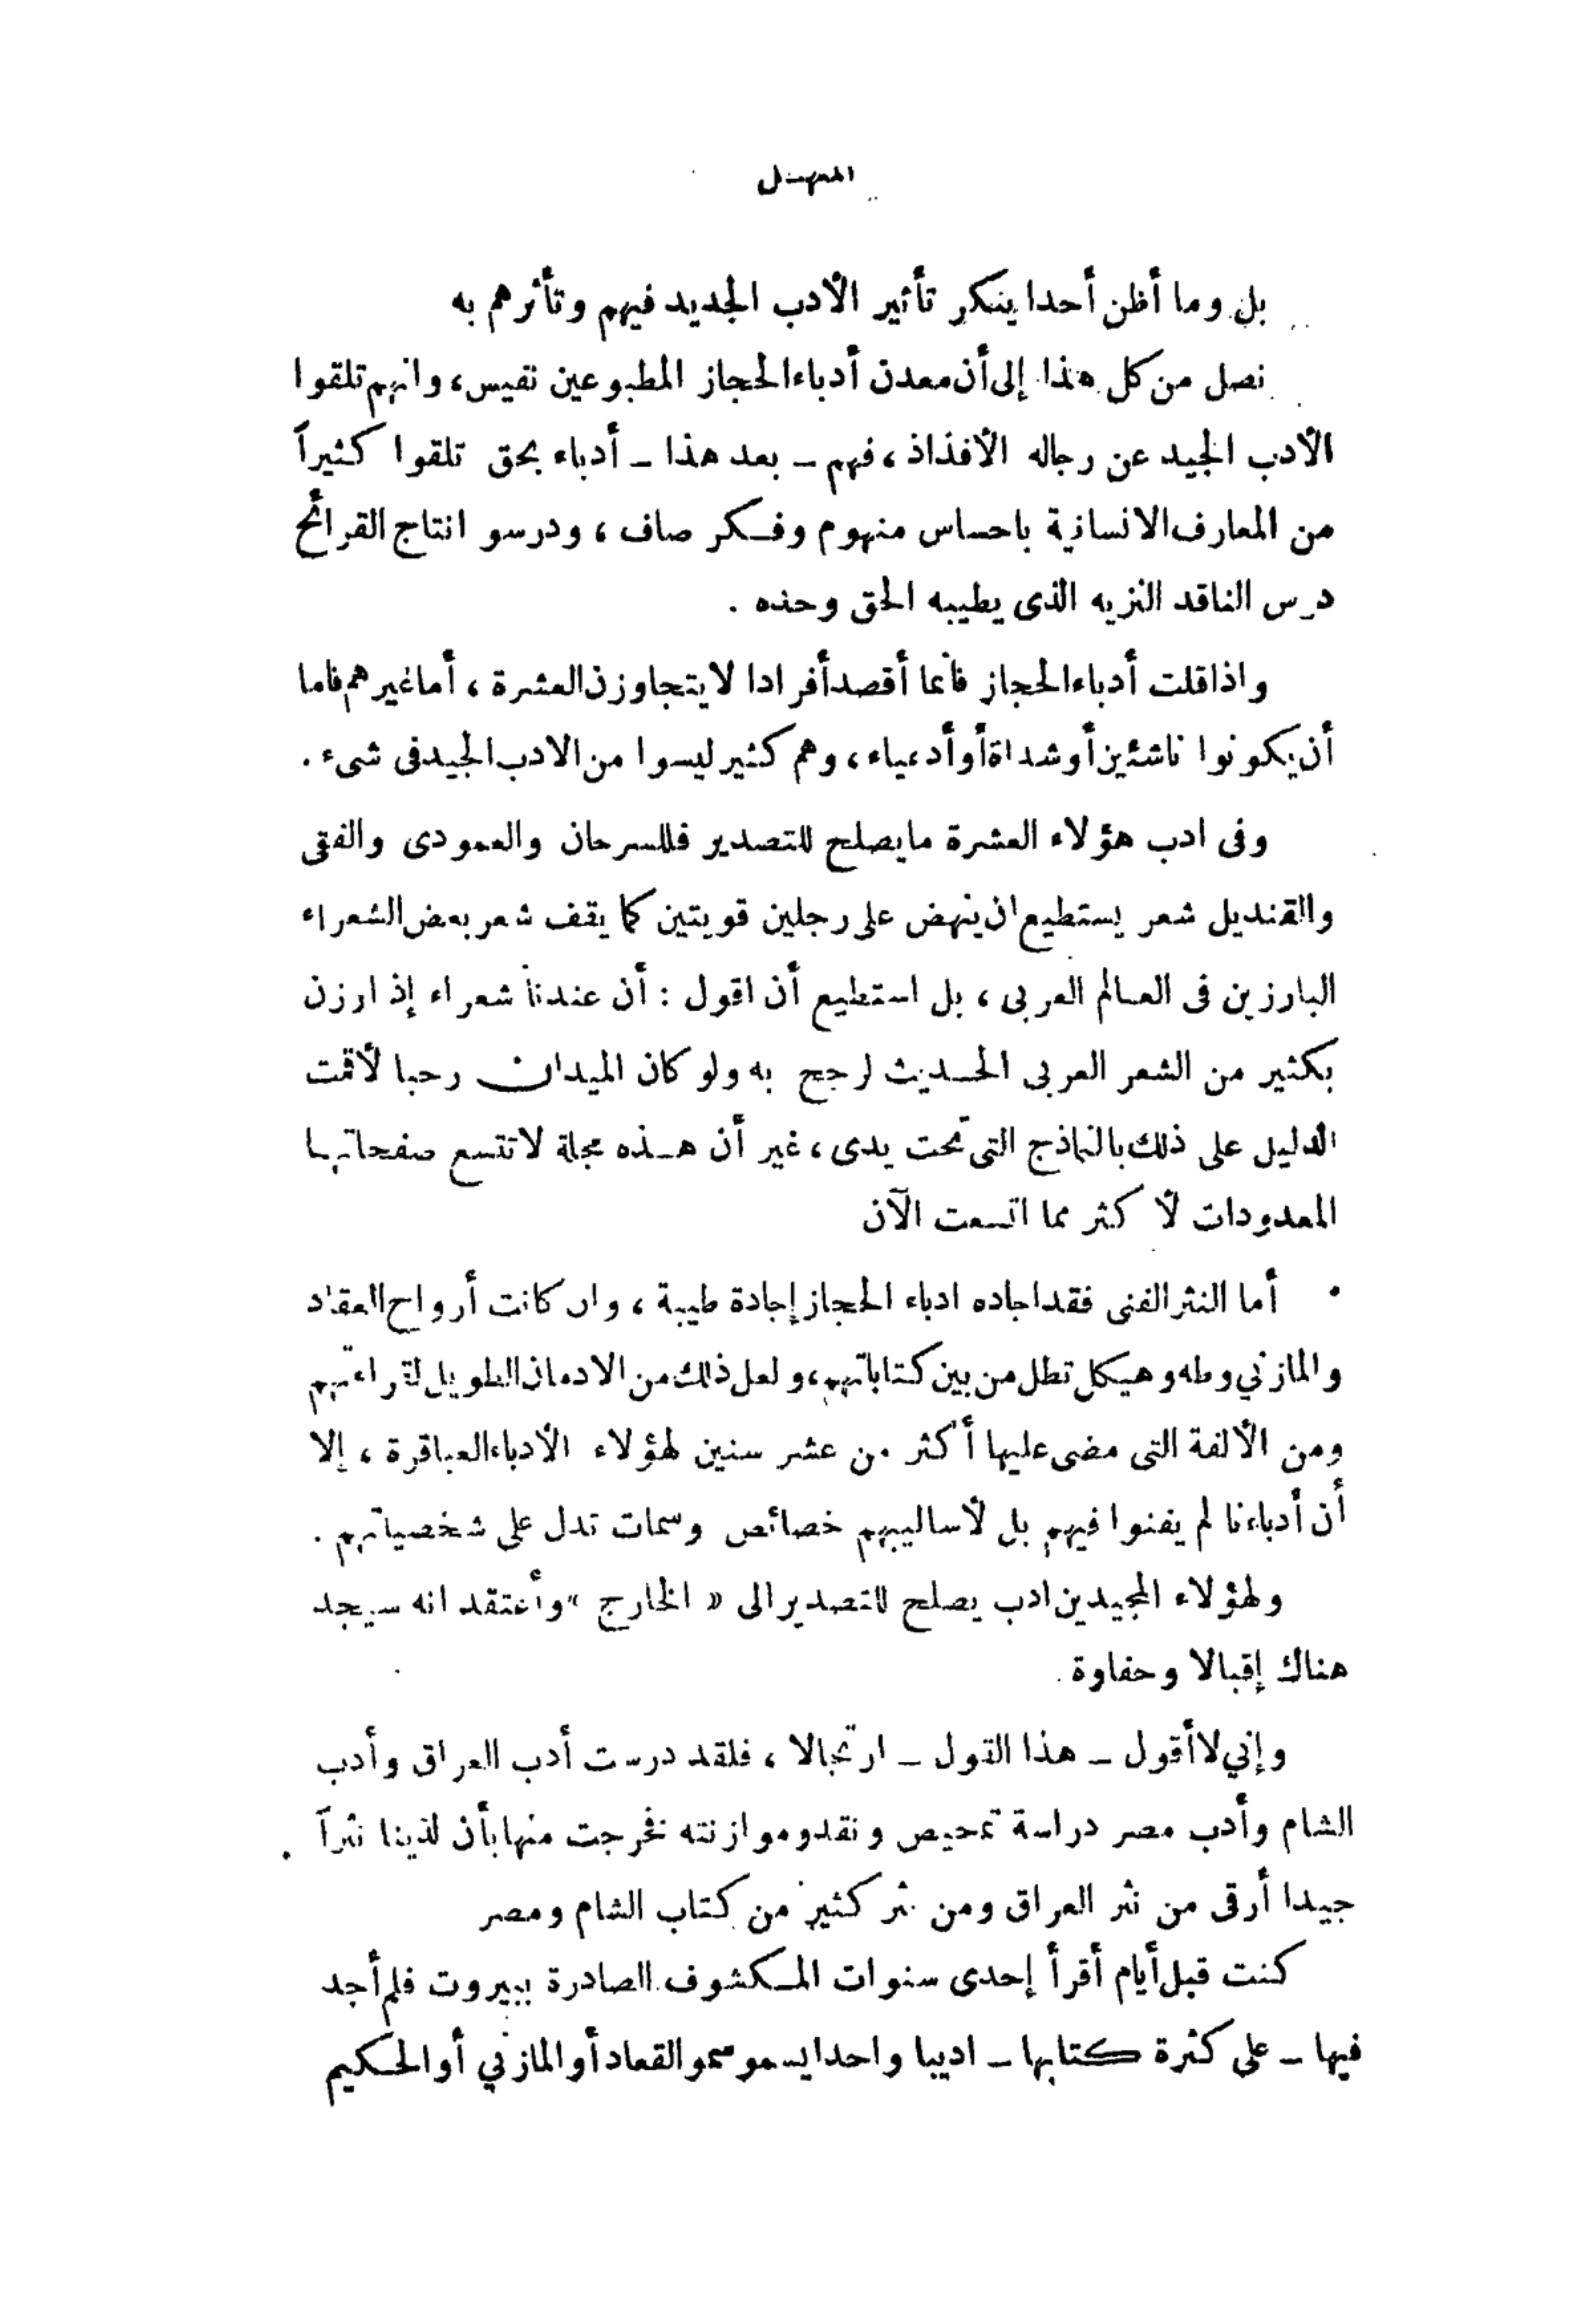 المنهـل
بل وما أظن أحدا ينكر تأثير الأدب الجديد فيهم وتأثرهم به
نصل من كل هذا إلى أن معدن أدباء الحجاز المطبوعين نفيس، وانهم تلقوا
الأدب الجيد عن رجاله الأفذاذ، فهم ــ بعد هذا ــ أدباء بحق تلقوا كثيراً
من المعارف الانسانية باحساس منهوم وفكر صاف، ودرسو انتاج القرائح
درس الناقد النزيه الذى يطيبه الحق وحده .
واذا قلت أدباء الحجاز فأنما أقصد أفرادا لا يتجاوزن العشرة، أما غيرهم فاما
أن يكونوا ناشئين أو شداة أو أدعياء، وهم كثير ليسوا من الادب الجيد فى شىء .
وفى ادب هؤلاء العشرة ما يصلح للتصدير فللسرحان والعمودى والفقى
والقنديل شعر يستطيع ان ينهض على رجلين قويتين كما يقف شعر بعض الشعراء
البارزين فى العالم العربى، بل استطيع أن اقول : أن عندنا شعراء إذ ارزن
بكثير من الشعر العربى الحديث لرجح به ولو كان الميدان رحبا لأقمت
الدليل على ذلك بالنماذج التى تحت يدى، غير أن هـذه مجلة لا تتسع صفحاتها
المعدودات لأ كثر مما اتسعت الآن
أما النثر الفنى فقد اجاده ادباء الحجاز إجادة طيبة، وان كانت أرواح العقاد
والمازني وطه وهيكل تطل من بين كتاباتهم، ولعل ذلك من الادمان الطويل لقراءتهم
ومن الألفة التى مضى عليها أكثر من عشر سنين لهؤلاء الأدباء العباقرة، إلا
أن أدباءنا لم يفنوا فيهم بل لأساليبهم خصائص وسمات تدل على شخصياتهم .
ولهؤلاء المجيدين ادب يصلح للتصدير الى « الخارج » وأعتقد انه سيجد
هناك إقبالا وحفاوة .
وإني لا أقول ــ هذا القول ــ ارتجالا، فلقد درست أدب العراق وأدب
الشام وأدب مصر دراسة تمحيص ونقد وموازنته نخرجت منها بأن لدينا نثراً
جيدا أرقى من نثر العراق ومن نثر كثير من كتاب الشام ومصر
كنت قبل أيام أقرأ إحدى سنوات المكشوف الصادرة ببيروت فلم أجد
فيها ــ على كثرة كتابها ــ اديبا واحدا يسمو سمو القعاد أو المازني أو الحكيم